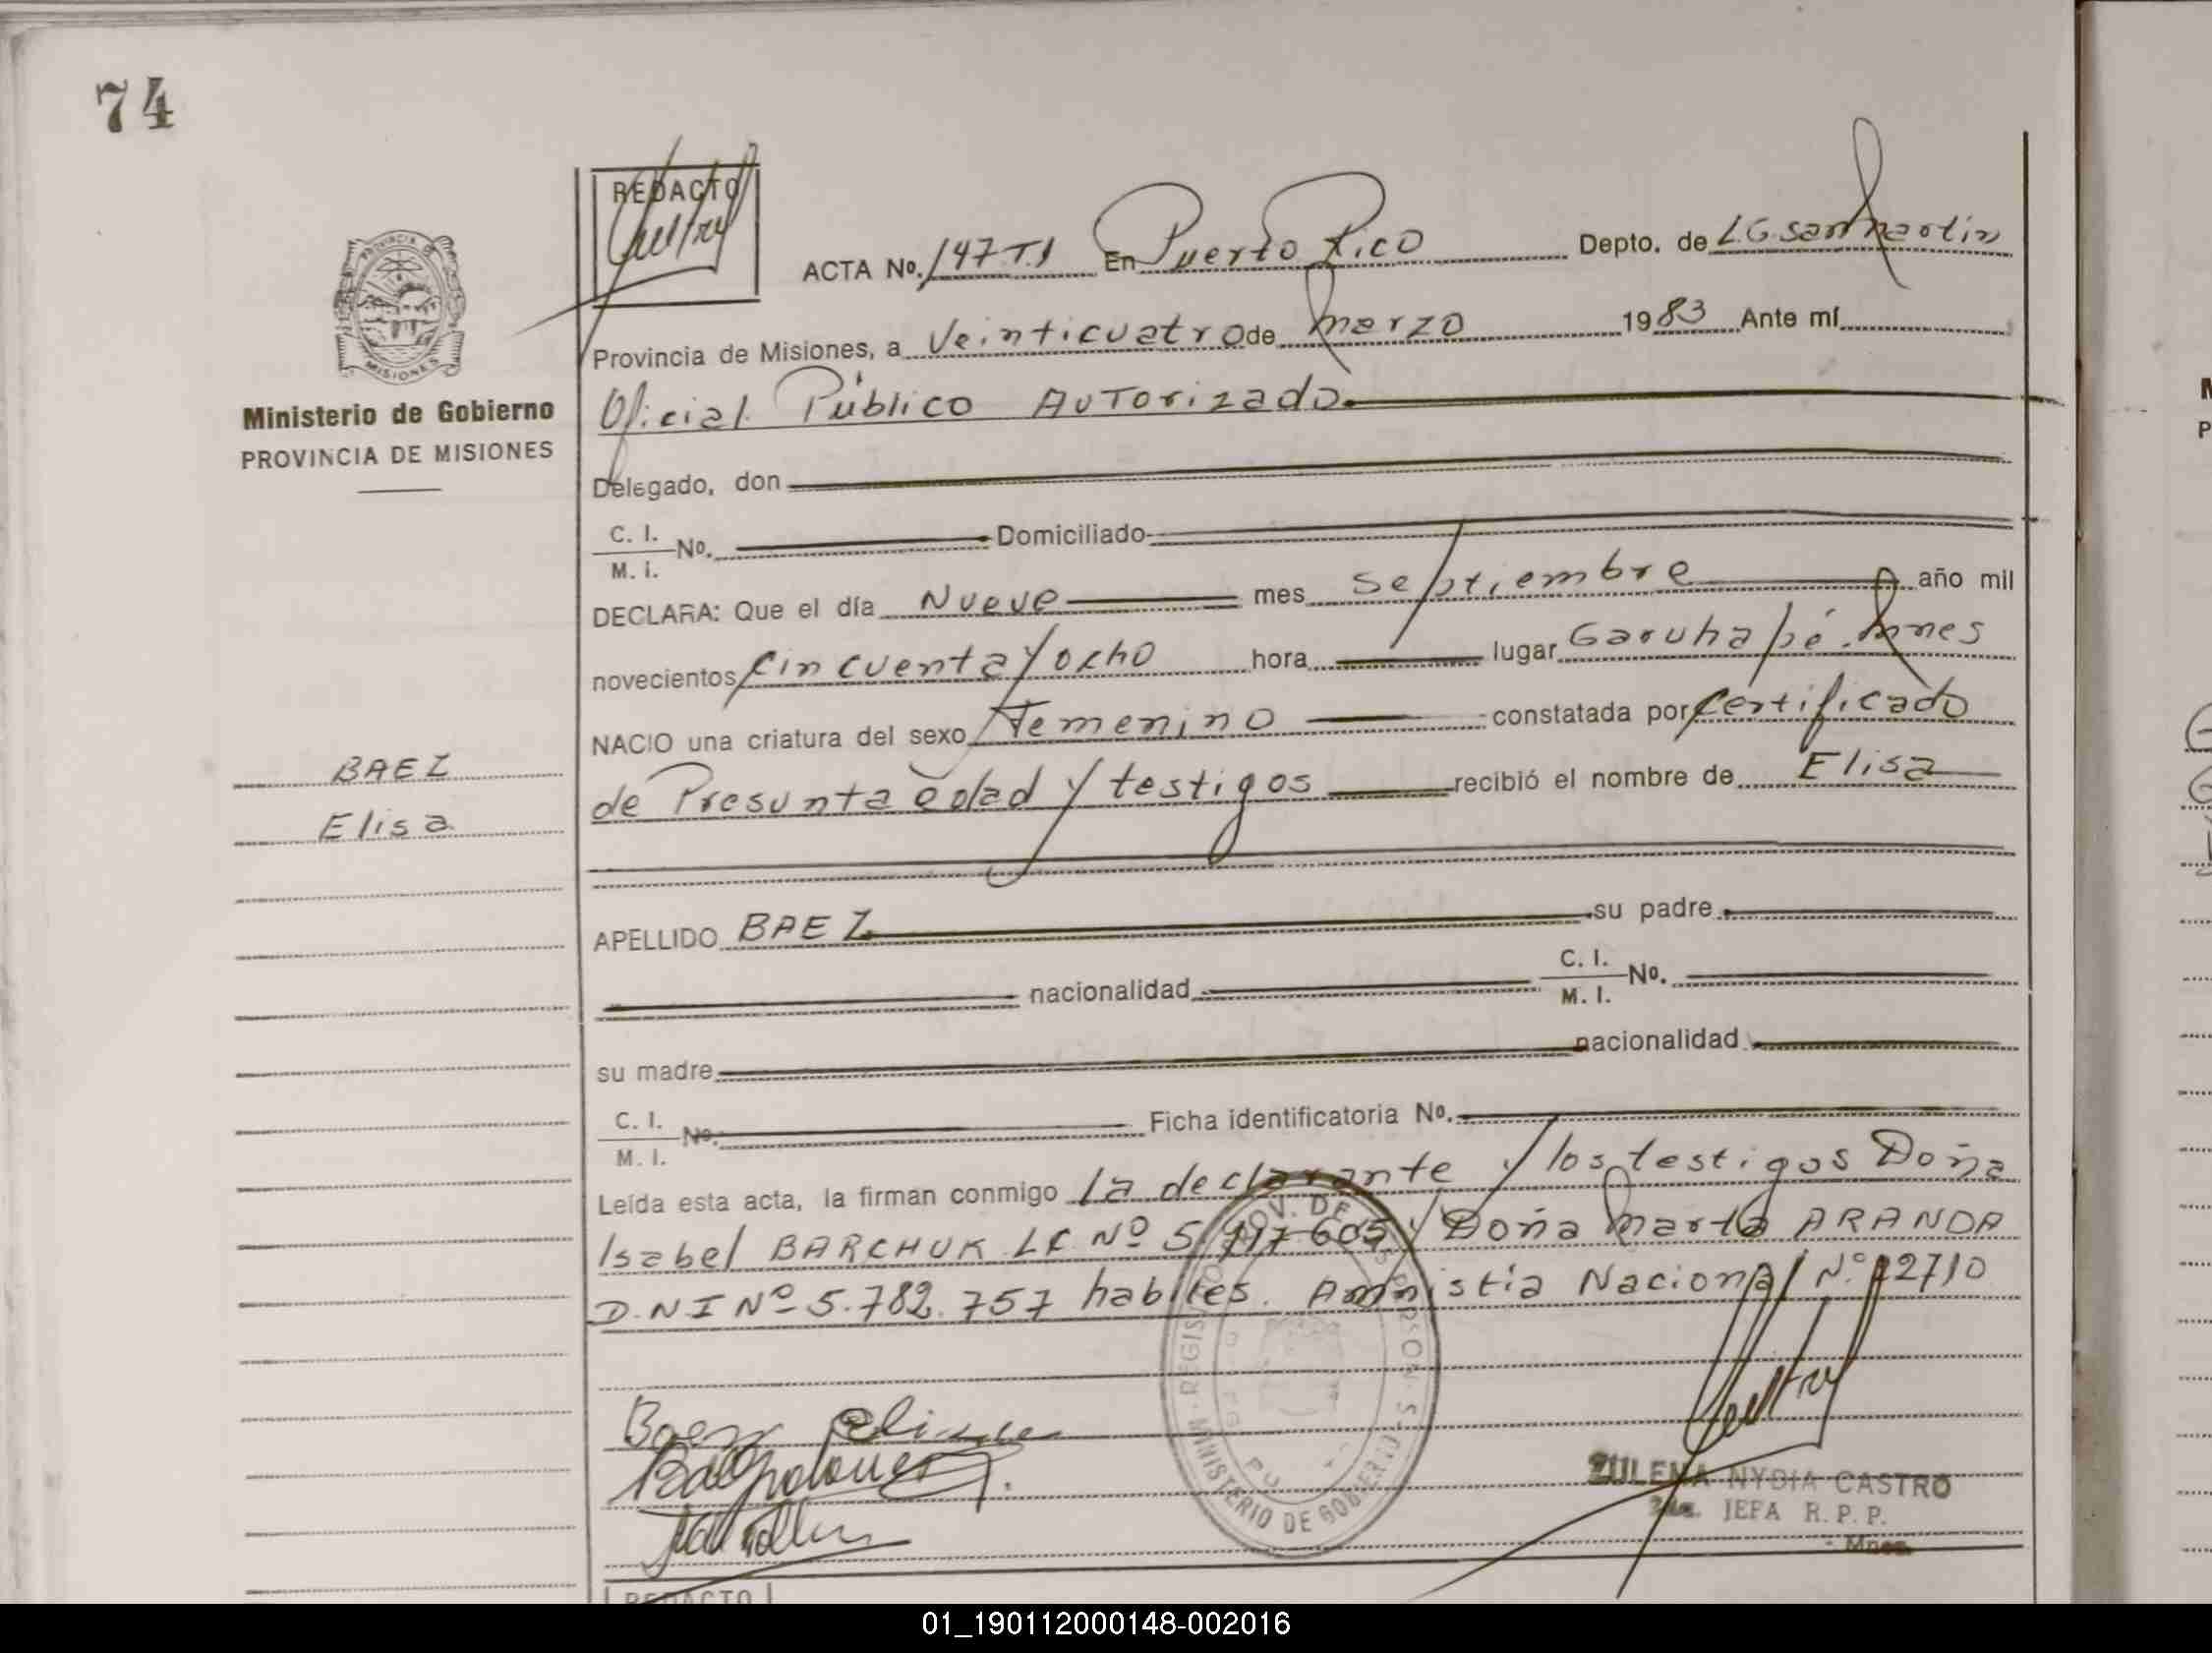 74
REDACTO
ACTA No. 147 T.I En Puerto Rico Depto. de L.G. San Martin
Provincia de Misiones, a Veinticuatro de Marzo 1983 Ante mí
Oficial Público Autorizado
Ministerio de Gobierno
PROVINCIA DE MISIONES
Delegado, don
C. I.
M. I. No. Domiciliado
DECLARA: Que el día Nueve mes Septiembre año mil
novecientos Cincuenta y ocho hora lugar Garuhapé. Mnes
NACIO una criatura del sexo Femenino constatada por Certificado
de Presunta edad y testigos recibió el nombre de Elisa
BAEZ
Elisa
APELLIDO BAEZ su padre
nacionalidad C. I.
M. I. No.
su madre nacionalidad
C. I.
M. I. No. Ficha identificatoria No.
Leída esta acta, la firman conmigo la declarante y los testigos Doña
Isabel BARCHUK LC Nº y Doña Marta ARANDA
D.N.I Nº 5.782.757 habiles. Amnistía Nacional
Baez Elisa
ZULEMA NYDIA CASTRO
JEFA R. P. P.
Mnes.
MINISTERIO DE GOBIERNO
REDACTO
01_190112000148-002016